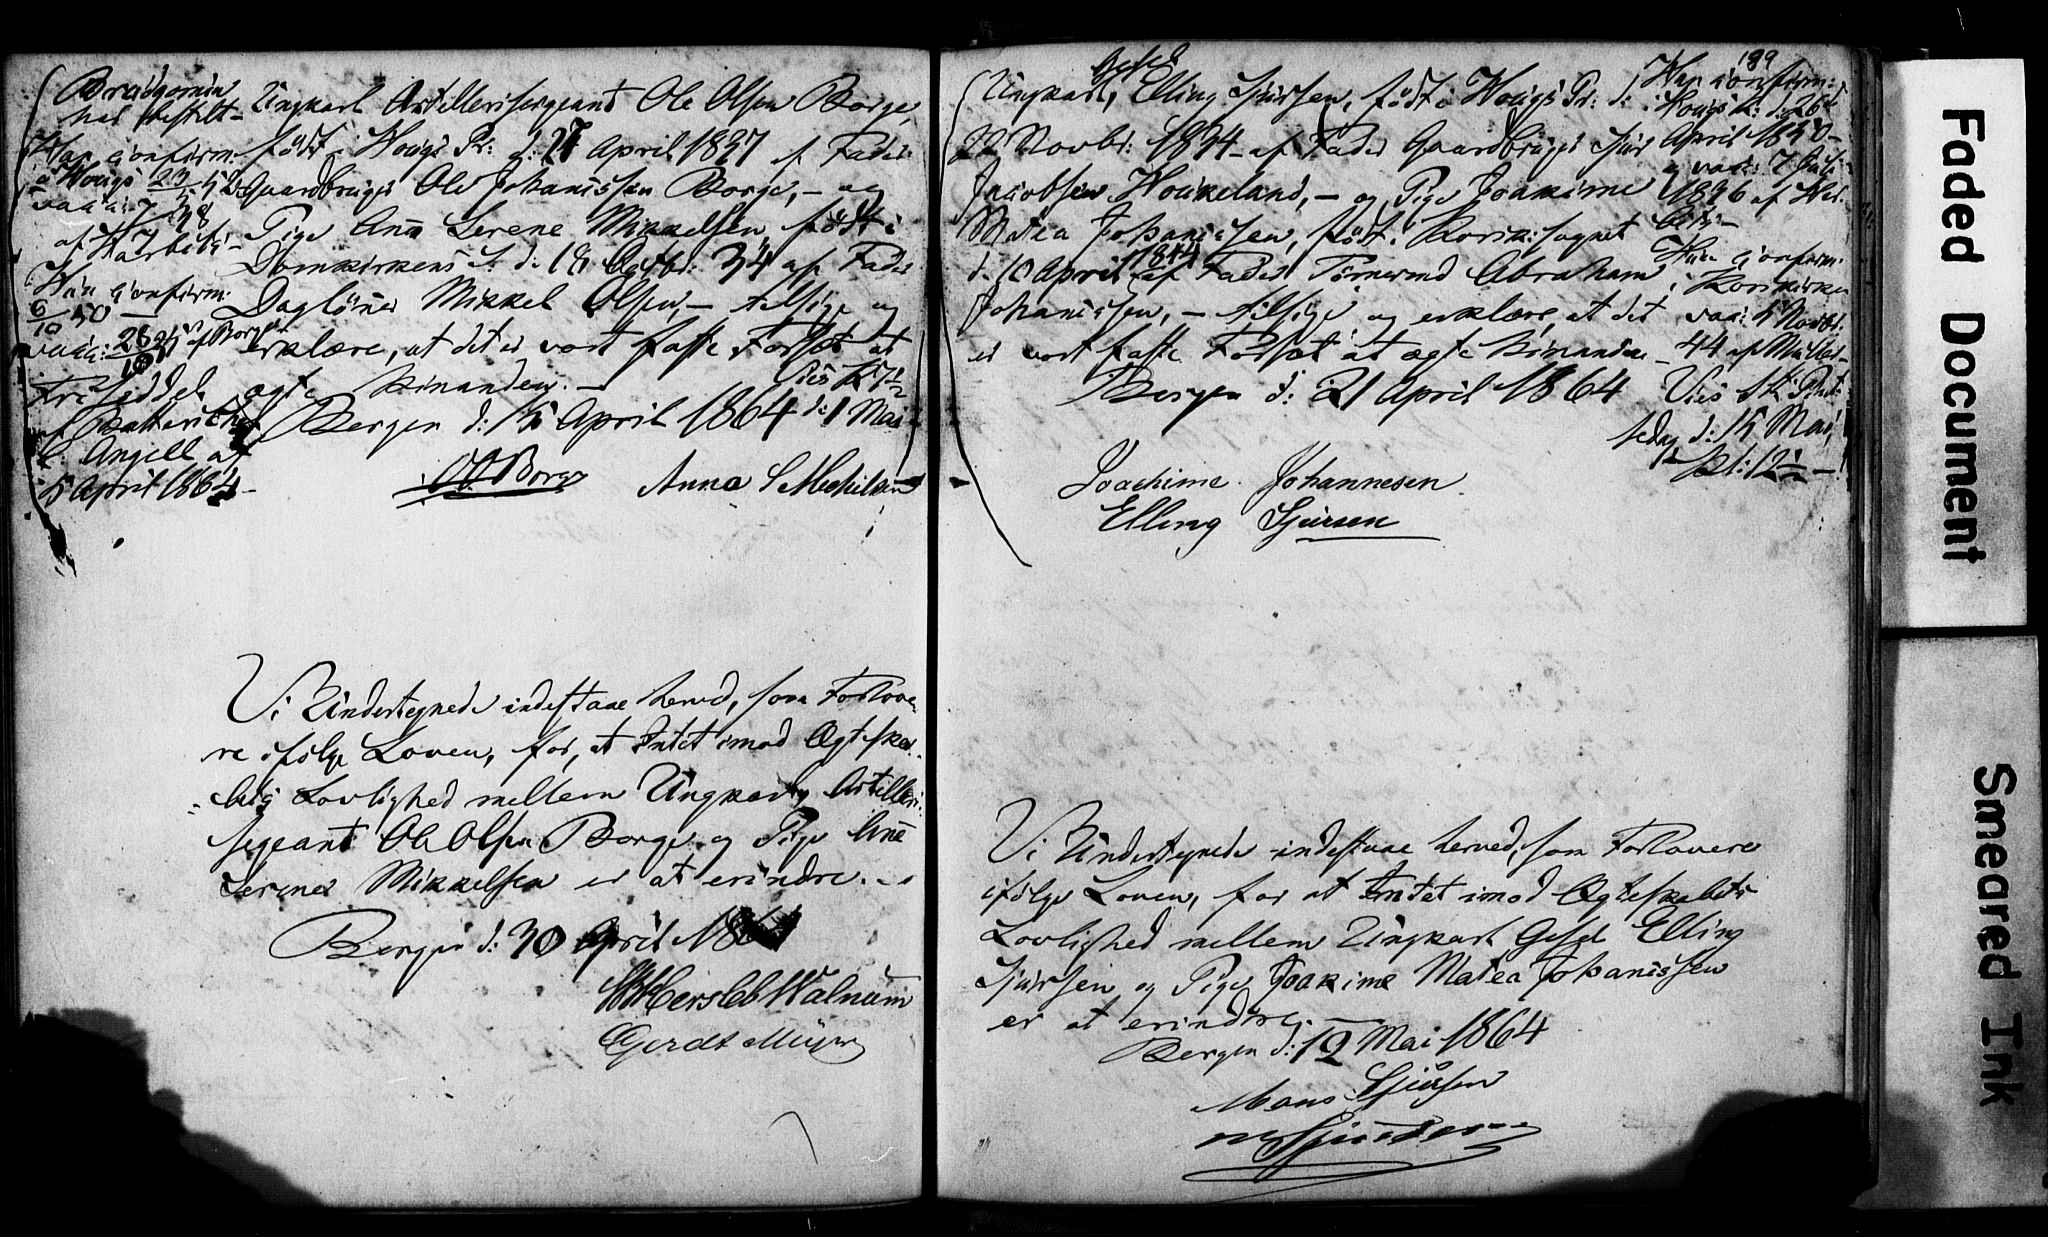 Brudgomen
har bestilt –
Han confirm:
i Hougs 23/5 52
vacc: 7/7 38
af Harbitz –
Hun confirm:
6/10 50 –
vacc: 28/10 35 af Borge
Friseddel
af Batteriechef
C. Angell af
5 April 1864 –
Ungkarl Artillerisergeant Ole Olsen Borge,
født i Hougs Pr: d: 27 April 1837 af Fader
Gaardbruger Ole Johannissen Borge, – og
Pige Ane Serene Mikkelsen, født i
Domkirkens S. d: 18 Octbr: 34 af Fader
Daglöner Mikkel Olsen, – tilsige og
erklære, at det er vort faste Forsæt at
ægte hinanden. –
Bergen d: 15 April 1864
Vies Kl 7½
d: 1 Mai
O O Borge Anna S Mickelsen
Vi Undertegnede indestaae herved, som Forlove-
re ifölge Loven, for, at Intet imod Ægteska-
belig Lovlighed mellem Ungkarl, Artilleri-
sergeant Ole Olsen Borge og Pige Ane
Serene Mikkelsen er at erindre. –
Bergen d: 30 April 1864
Hersleb Walnum
Gerdt Meyer
199
Gesel
Ungkarl, Elling Sjursen, født i Hougs Pr: d:
22 Novbr: 1834 – af Fader Gaardbruger Sjur
Jacobsen Houkeland, – og Pige Joakime
Matea Johanissen, født i Korskisognet
d. 10 April 1844 af Fader Tömermd Abraham
Johanissen, – tilsige og erklære, at det
er vort faste Forsæt at ægte hinanden –
Bergen d: 21 April 1864
Han confirm:
i Hougs K: d: 26d
April 1850 –
og vacc: 7 Juli
1836 af Har-
bitz –
Hun confirm:
i Korskirken
vacc: 5 Novbr:
44 af Müller –
Vies 1ste Pint-
sedag d: 15 Mai,
Kl: 12½ –
Joachime Johannesen
Elling Sjursen
Vi Undertegnede indestaae herved, som Forlovere
ifölge Loven, for at Intet imod Ægteskabets
Lovlighed mellem Ungkarl Gesel Elling
Sjursen og Pige Joakime Matea Johanissen
er at erindre. –
Bergen d: 12 Mai 1864
Mons Sjursen
Faded Document
Smeared Ink